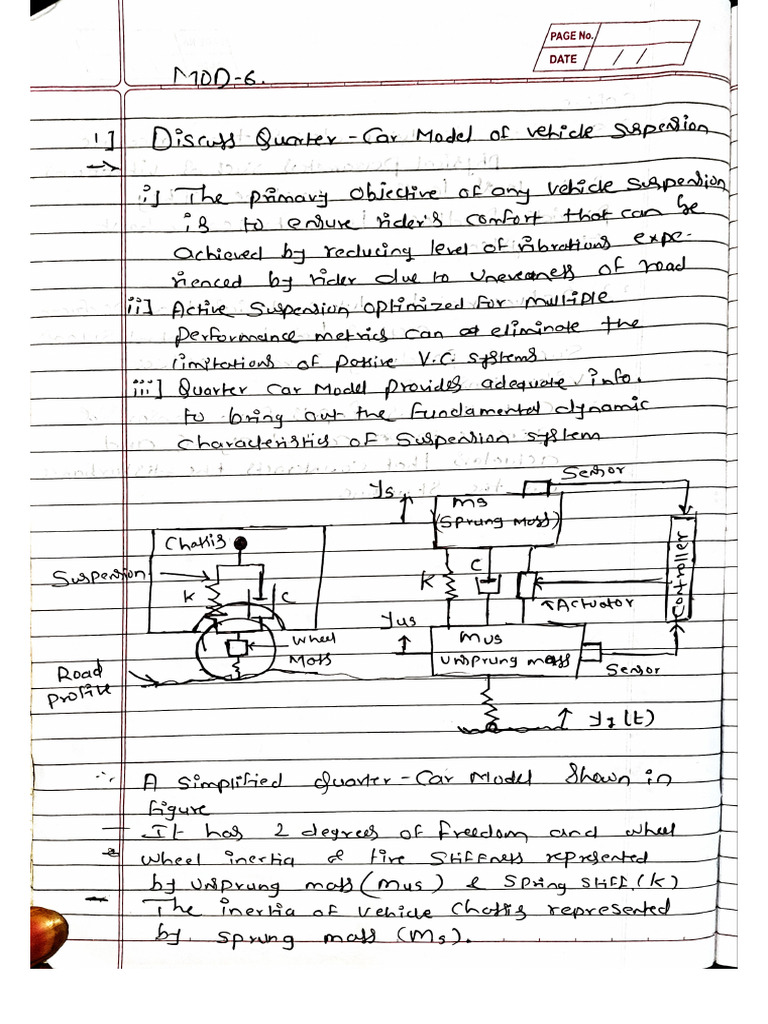 PAGE No.
DATE / /
MOD-6.
1] Discuss Quarter-Car Model of vehicle suspension
→
i] The primary objective of any vehicle suspension
is to ensure rider's comfort that can be
achieved by reducing level of vibrations expe-
rienced by rider due to uneveness of road
ii] Active suspension optimized for multiple
performance metrics can eliminate the
limitations of passive V.C. systems
iii] Quarter Car Model provides adequate info.
to bring out the fundamental dynamic
characteristics of suspension system
ys
ms
(Sprung Mass)
Sensor
Chassis
Suspension
K
C
Wheel
Mass
Road
Profile
K
C
Actuator
Controller
yus
mus
unsprung mass
Sensor
yz(t)
∴ A simplified Quarter-Car Model shown in
figure
— It has 2 degrees of freedom and wheel
wheel inertia & tire stiffness represented
by unsprung mass (mus) & spring stiff. (k)
— The inertia of vehicle chassis represented
by sprung mass (Ms).